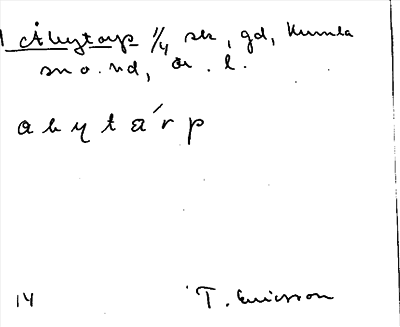 Åbytorp 1/4 sk, gd, Kumla
sn o. hd, Ör. l.
a b y t å ́ r p
14 T. Ericsson